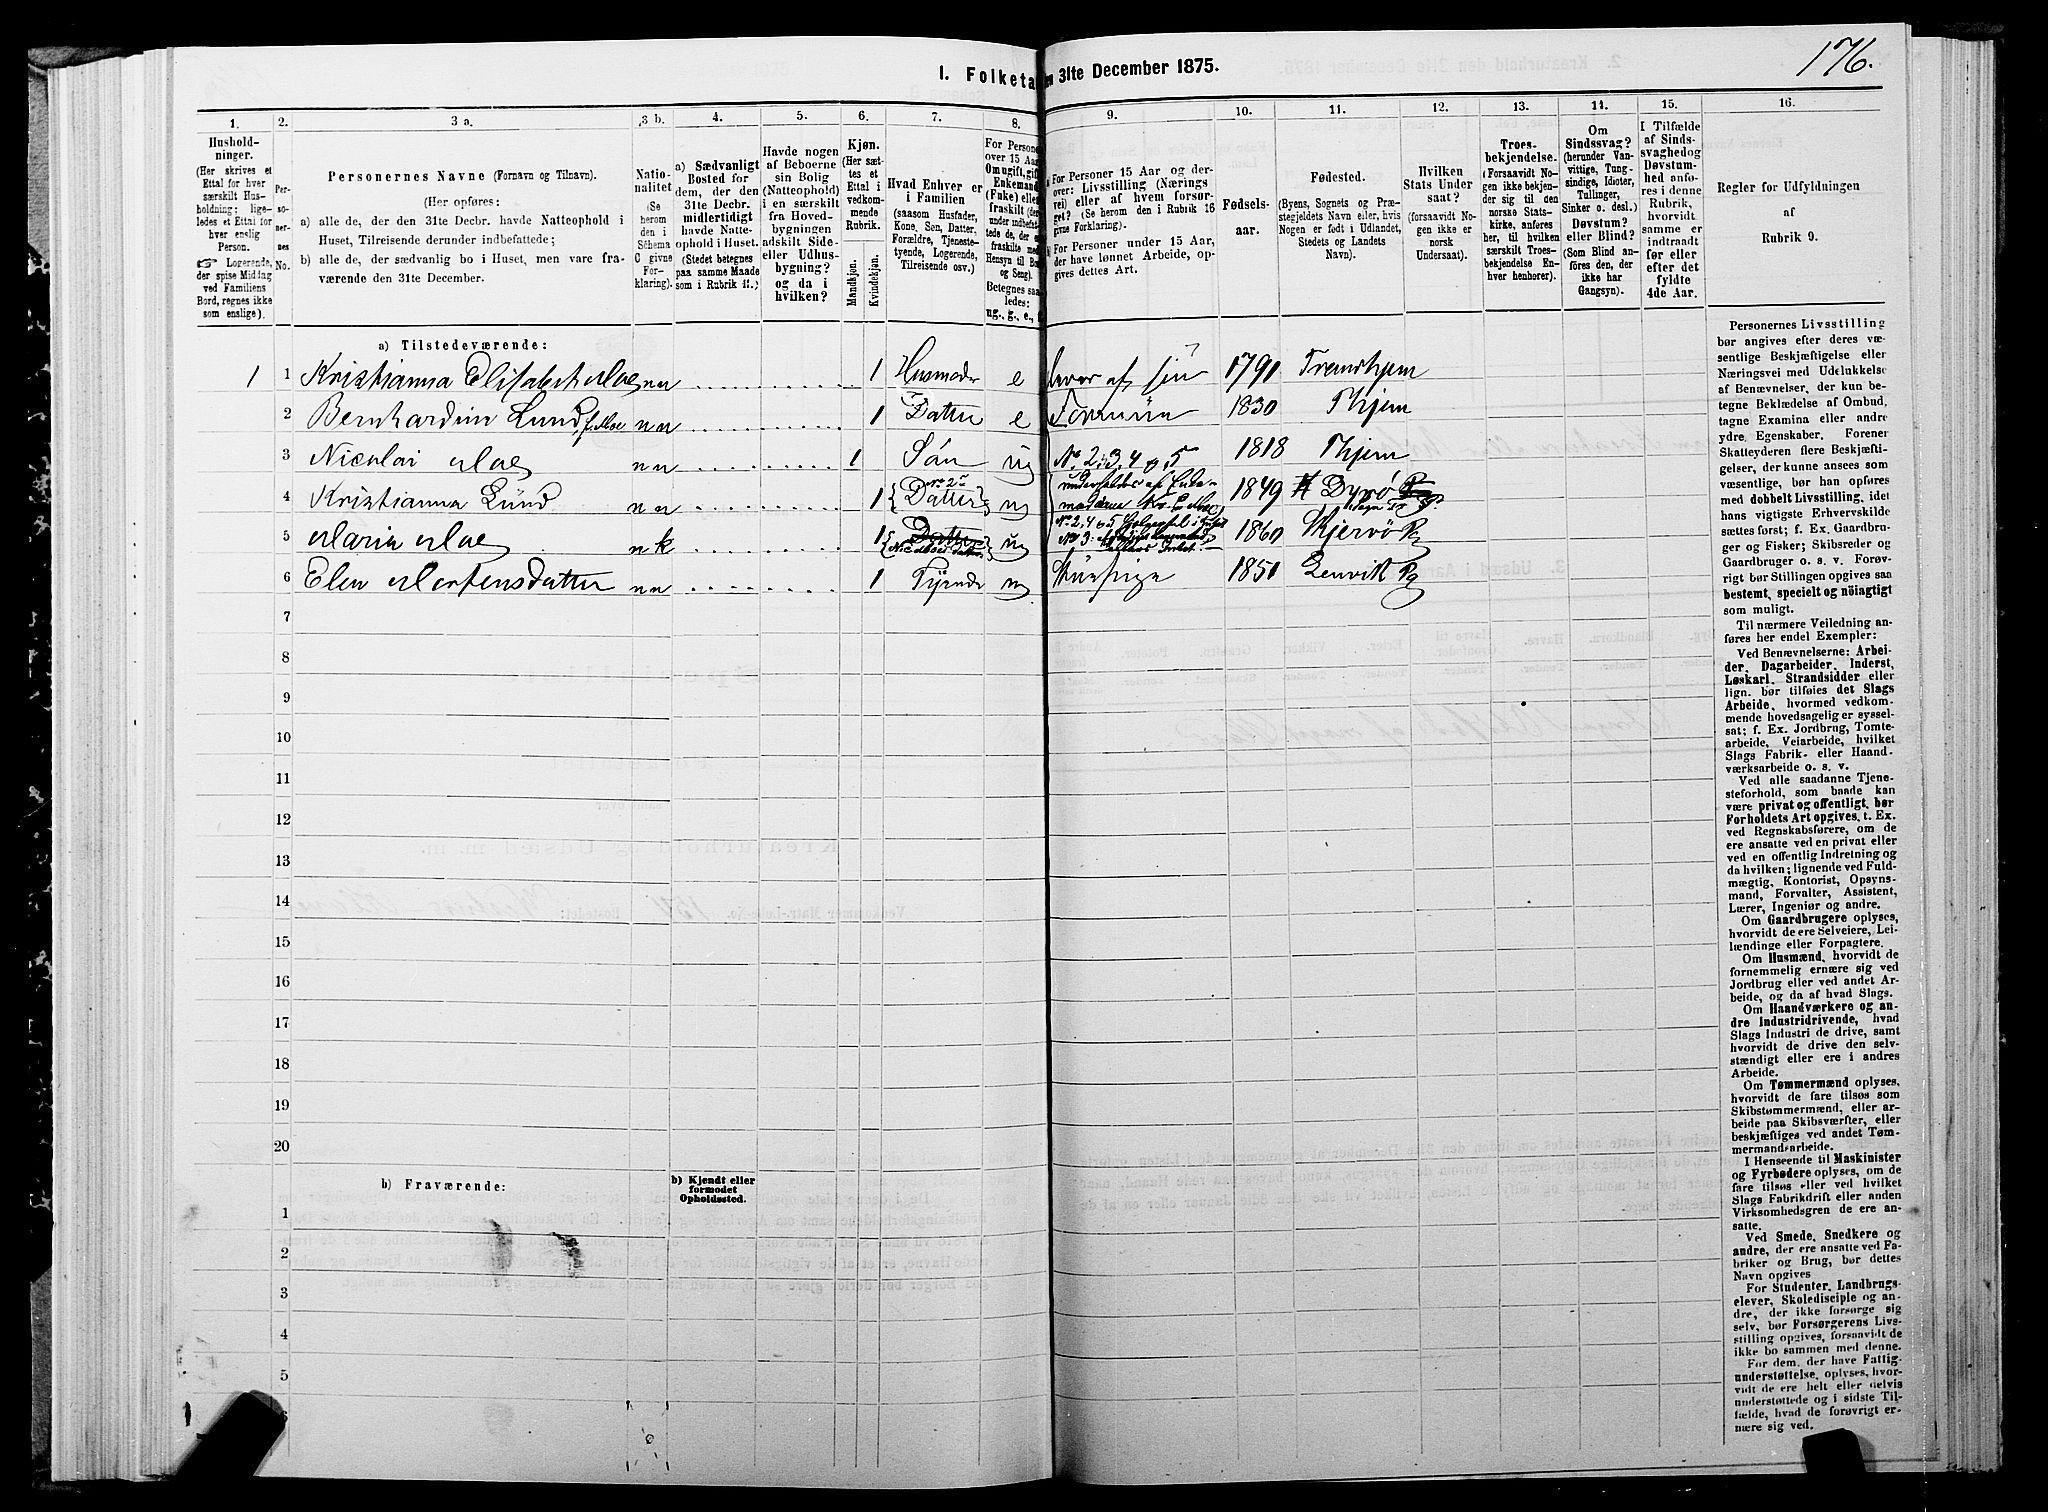 176.
I. Folketa en 31te December 1875.
1. 2. 3 a. 3 b. 4. 5. 6. 7. 8. 9. 10. 11. 12. 13. 14. 15. 16.
Hushold-
ninger.
(Her skrives et
Ettal for hver
særskilt Hus-
holdning; lige-
ledes et Ettal for
hver enslig
Person.
☞ Logerende,
der spise Middag
ved Familiens
Bord, regnes ikke
som enslige).
Per-
so-
ner-
nes
No.
Personernes Navne (Fornavn og Tilnavn).
(Her opføres:
a) alle de, der den 31te Decbr. havde Natteophold i
Huset, Tilreisende derunder indbefattede;
b) alle de, der sædvanlig bo i Huset, men vare fra-
værende den 31te December.
Natio-
nalitet
(Se
herom
den i
Schema
C givne
For-
klaring).
a) Sædvanligt
Bosted for
dem, der den
31te Decbr.
midlertidigt
havde Natte-
ophold i Huset.
(Stedet betegnes
paa samme Maade
som i Rubrik 11.)
Havde nogen
af Beboerne
sin Bolig
(Natteophold)
i en særskilt
fra Hoved-
bygningen
adskilt Side-
eller Udhus-
bygning?
og da i
hvilken?
Kjøn.
(Her sæt-
tes et
Ettal i
vedkom-
mende
Rubrik.
Mandkjøn.
Kvindekjøn.
Hvad Enhver er
i Familien
(saasom Husfader,
Kone, Søn, Datter,
Forældre, Tjeneste-
tyende, Logerende,
Tilreisende osv.)
For Personer
over 15 Aar:
Om ugift, gift,
Enkemand
(Enke) eller
fraskilt
Betegnes saa-
ledes:
ug., g., e., f.
For Personer 15 Aar og der-
over: Livsstilling (Nærings
vei) eller af hvem forsør-
get? (Se herom den i Rubrik 16
givne Forklaring).
For Personer under 15 Aar,
der have lønnet Arbeide, op-
gives dettes Art.
Fødsels-
aar.
Fødested.
(Byens, Sognets og Præ-
stegjeldets Navn eller, hvis
Nogen er født i Udlandet,
Stedets og Landets
Navn).
Hvilken
Stats Under
saat?
(forsaavidt No-
gen ikke er
norsk
Undersaat).
Troes-
bekjendelse.
(Forsaavidt No-
gen ikke bekjen-
der sig til den
norske Stats-
kirke, anføres
her, til hvilken
særskilt Troes-
bekjendelse En-
hver henhører).
Om
Sindssvag?
(herunder Van-
vittige, Tung-
sindige, Idioter,
Tullinger,
Sinker o. desl.)
Døvstum?
eller Blind?
(Som Blind an-
føres den, der
ikke har
Gangsyn).
I Tilfælde
af Sinds-
svaghed og
Døvstum-
hed anfø-
res i denne
Rubrik,
hvorvidt
samme er
indtraadt
før eller
efter det
fyldte
4de Aar.
Regler for Udfyldningen
af
Rubrik 9.
a) Tilstedeværende:
1 1 Kristianna Elisabeth Moe n n 1 Husmoder e lever af sin 1791 Trondhjem
2 Bernhardin Lund f. Moe n n 1 Datter e Formue 1830 Thjem
3 Nicolai Moe n n 1 Søn ug No. 2, 3, 4 og 5 1818 Thjem
4 Kristianna Lund n n 1 No 2s Datter ug 1849 Dyrø
5 Maria Moe n k 1 Datter ug 1860 Skjervø Pg
6 Elen Mortensdatter n n 1 Tjenest ug Huspige 1851 Lenvik Pg
7
8
9
10
11
12
13
14
15
16
17
18
19
20
b) Fraværende:
b) Kjendt eller
formodet
Opholdssted.
1
2
3
4
5
Personernes Livsstilling
bør angives efter deres væ-
sentlige Beskjæftigelse eller
Næringsvei med Udelukkelse
af Benævnelser, der kun be-
tegne Beklædelse af Ombud,
tagne Examina eller andre
ydre Egenskaber. Forener
Skatteyderen flere Beskjæfti-
gelser, der kunne ansees som
væsentlige, bør han opføres
med dobbelt Livsstilling, idet
hans vigtigste Erhvervskilde
sættes forst; f. Ex. Gaardbru-
ger og Fisker; Skibsreder og
Gaardbruger o. s. v. Forøv-
rigt bør Stillingen opgives saa
bestemt, specielt og nöiagtigt
som muligt.
Til nærmere Veiledning an-
føres her endel Exempler:
Ved Benævnelserne: Arbei-
der, Dagarbeider, Inderst,
Løskarl, Strandsidder eller
lign. bør tilføies det Slags
Arbeide, hvormed vedkom-
mende hovedsagelig er syssel-
sat; f. Ex. Jordbrug, Tomte-
arbeide, Veiarbeide, hvilket
Slags Fabrik- eller Haand-
værksarbeide o. s. v.
Ved alle saadanne Tjene-
steforhold, som baade kan
være privat og offentligt, bør
Forholdets Art opgives, t. Ex.
ved Regnskabsførere, om de
ere ansatte ved en privat eller
ved en offentlig Indretning og
da hvilken; lignende ved Fuld-
mægtig, Kontorist, Opsyns-
mand, Forvalter, Assistent,
Lærer, Ingeniør og andre.
Om Gaardbrugere oplyses,
hvorvidt de ere Selveiere, Lei-
lændinge eller Forpagtere.
Om Husmænd, hvorvidt de
fornemmelig ernære sig ved
Jordbrug eller ved andet Ar-
beide, og da af hvad Slags.
Om Haandværkere og an-
dre Industridrivende, hvad
Slags Industri de drive, samt
hvorvidt de drive den selv-
stændigt eller ere i andres
Arbeide.
Om Tømmermænd oplyses,
hvorvidt de fare tilsøs som
Skibstømmermænd, eller ar-
beide paa Skibsværfter, eller
beskjæftiges ved andet Tøm-
mermandsarbeide.
I Henseende til Maskinister
og Fyrbødere oplyses, om de
fare tilsøs eller ved hvilket
Slags Fabrikdrift eller anden
Virksomhedsgren de ere an-
satte.
Ved Smede, Snedkere og
andre, der ere ansatte ved Fa-
briker og Brug, bør dettes
Navn opgives
For Studenter, Landbrugs-
elever, Skoledisciple og an-
dre, der ikke forsørge sig
selv, bør Forsørgerens Livs-
stilling opgives, forsaavidt de
ikke bo sammen med denne.
For dem, der have Fattig-
understøttelse, oplyses, hvor-
vidt de ere helt eller delvis
understøttede og i sidste Til-
fælde, hvad de forøvrigt er-
nære sig ved.